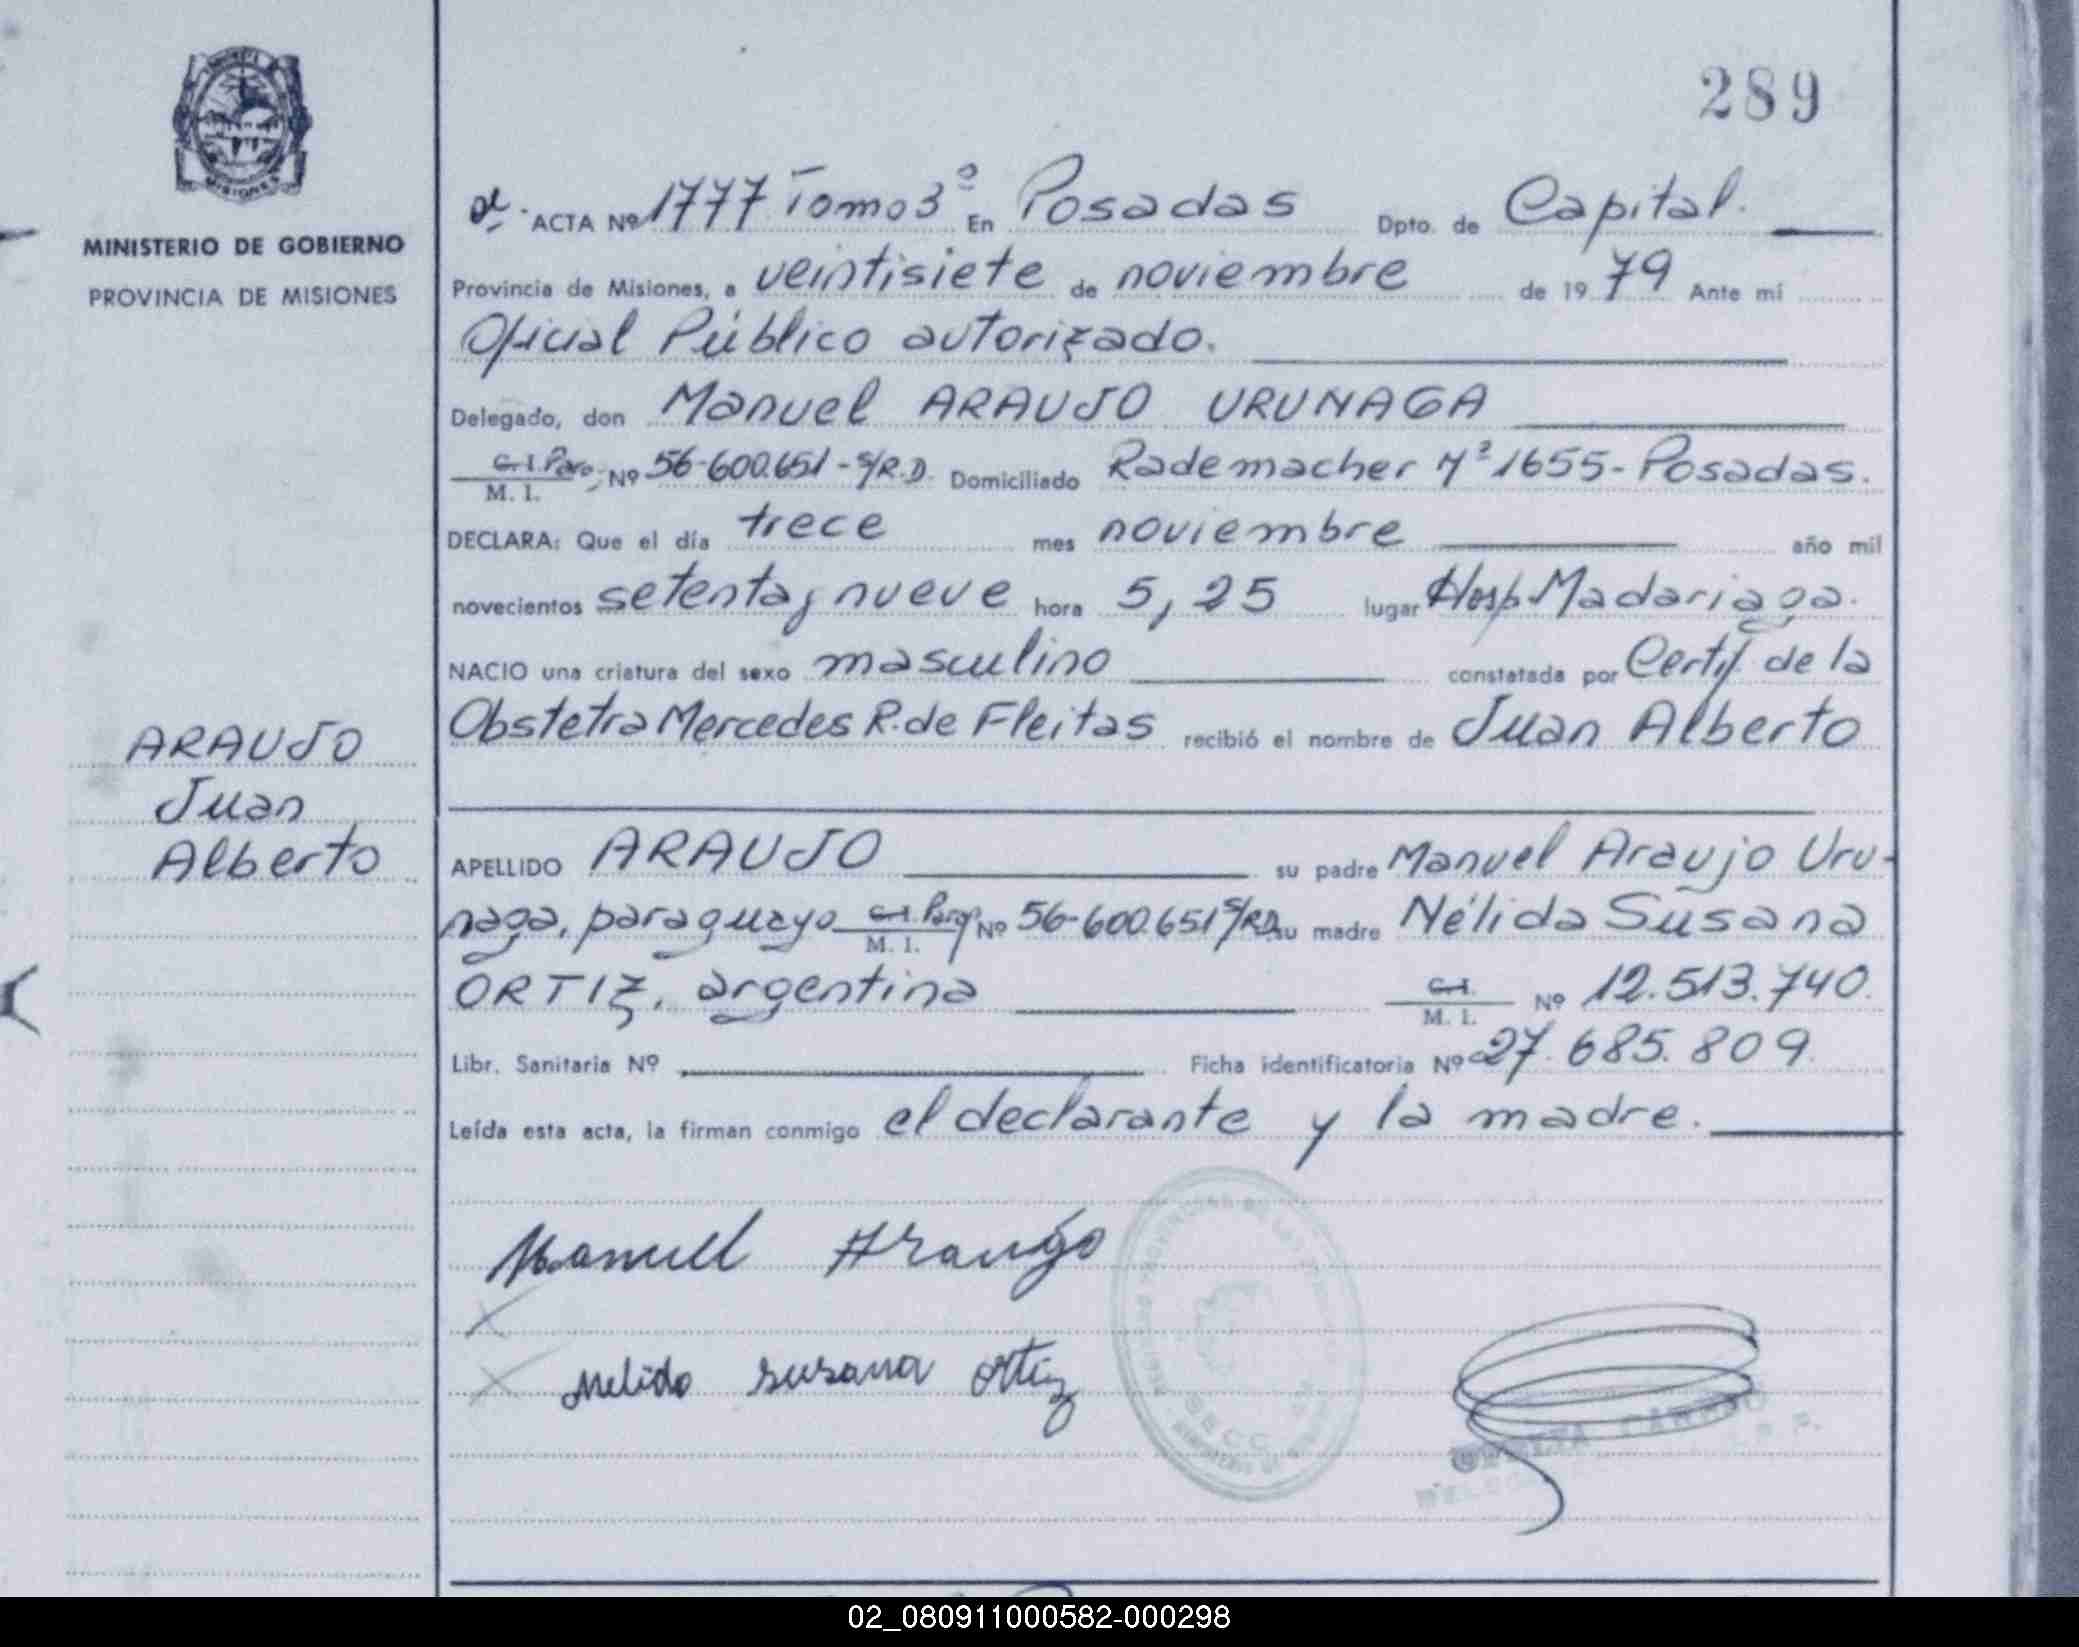 289
MISIONES
MINISTERIO DE GOBIERNO
PROVINCIA DE MISIONES
ARAUJO
Juan
Alberto
ACTA Nº 1777 Tomo 3º En Posadas Dpto. de Capital.
Provincia de Misiones, a veintisiete de noviembre de 1979 Ante mí
Oficial Público autorizado.
Delegado, don Manuel ARAUJO URUNAGA
C.I. Parag. Nº 56-600.651-S/R.D. Domiciliado Rademacher Nº 1655-Posadas.
M. I.
DECLARA: Que el día trece mes noviembre año mil
novecientos setenta y nueve hora 5,25 lugar Hosp. Madariaga.
NACIO una criatura del sexo masculino constatada por Certif. de la
Obstetra Mercedes R. de Fleitas recibió el nombre de Juan Alberto
APELLIDO ARAUJO su padre Manuel Araujo Uru-
naga, paraguayo C.I. Parag Nº 56-600.651 S/RD. su madre Nélida Susana
M. I.
ORTIZ, argentina C.I. Nº 12.513.740.
M. I.
Libr. Sanitaria Nº Ficha identificatoria Nº 27.685.809
Leída esta acta, la firman conmigo el declarante y la madre.
Manuel Araujo
Nelida Susana Ortiz
02_080911000582-000298